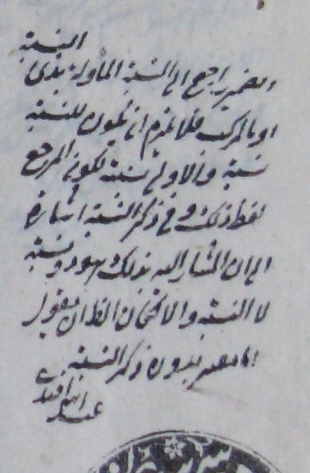 النسبة
الضمير راجع الى النسبة المأولة بذى
او بالمركب فلا يلزم ان تكون للنسبة
نسبة والاولى نسبته لكون المرجع
لفظ ذلك وفى ذكر النسبة اشارة
الى ان المشار اليه بذلك هو ذو نسبة
لا النسبة والا لكان الظ ان يقول
بدون ذكر النسبة
عبد الله افندى